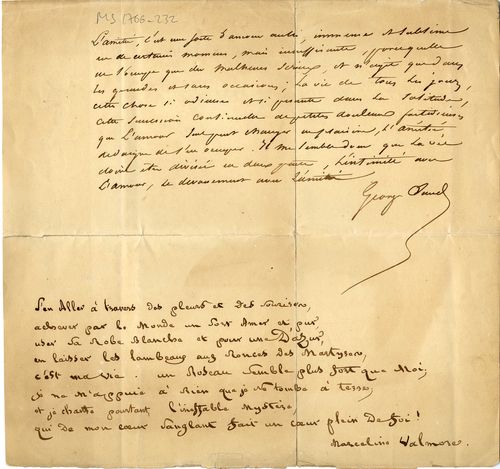 MS 1766-232
L'amitié, c'est une sorte d'amour aussi, immense et sublime
en de certains moments, mais insuffisante, parcequ'elle
ne s'occupe que des malheurs sérieux et n'agit que dans
les grandes et rares occasions; La vie de tous les jours,
cette chose si odieuse et si pesante dans la solitude,
cette succession continuelle de petites douleurs fastidieuses
que L'amour seul peut changer en plaisirs, L'Amitié
dédaigne de s'en occuper. Il me semble donc que la vie
doive être divisée en deux parts, L'intimité avec
L'amour, le dévouement avec L'amitié
George Sand
S'en Aller à travers des pleurs et des sourires,
achever par le Monde un Sort Amer et pur
user sa Robe Blanche et pour une D'azur,
en laisser les lambeaux aux Ronces des Martyres,
c'est ma vie. un Roseau Semble plus fort que Moi;
je ne M'appuie à Rien que je ne tombe à terre,
et je chante pourtant l'ineffable Mystère,
qui de mon cœur Sanglant fait un cœur plein De foi!
Marceline Valmore.